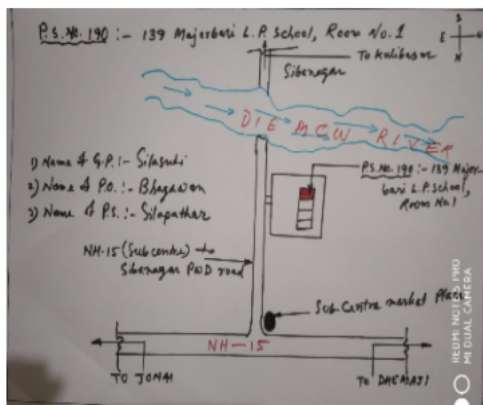 P.S. No. 190 :- 139 Majorbari L.P. School, Room No. 1
S
E W
N
To Kulibazar
Sibanagar
DIEMOW RIVER
1) Name of G.P. :- Silasuti
2) Name of P.O. :- Bhagawan
3) Name of P.S. :- Silapathar
P.S. No. 190 :- 139 Major-
bari L.P. School,
Room No. 1
NH-15 (Subcentre) to
Sibanagar PWD road
Sub-Centre market Place
NH-15
TO JONAI
TO DHEMAJI
REDMI NOTE 5 PRO
MI DUAL CAMERA